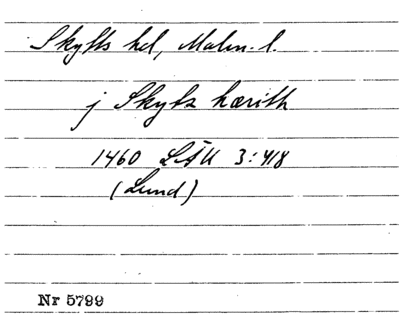 Skytts hd, Malm. l.
j Skytz hærith
1460 LÄU 3:418
(Lund)
Nr 5799